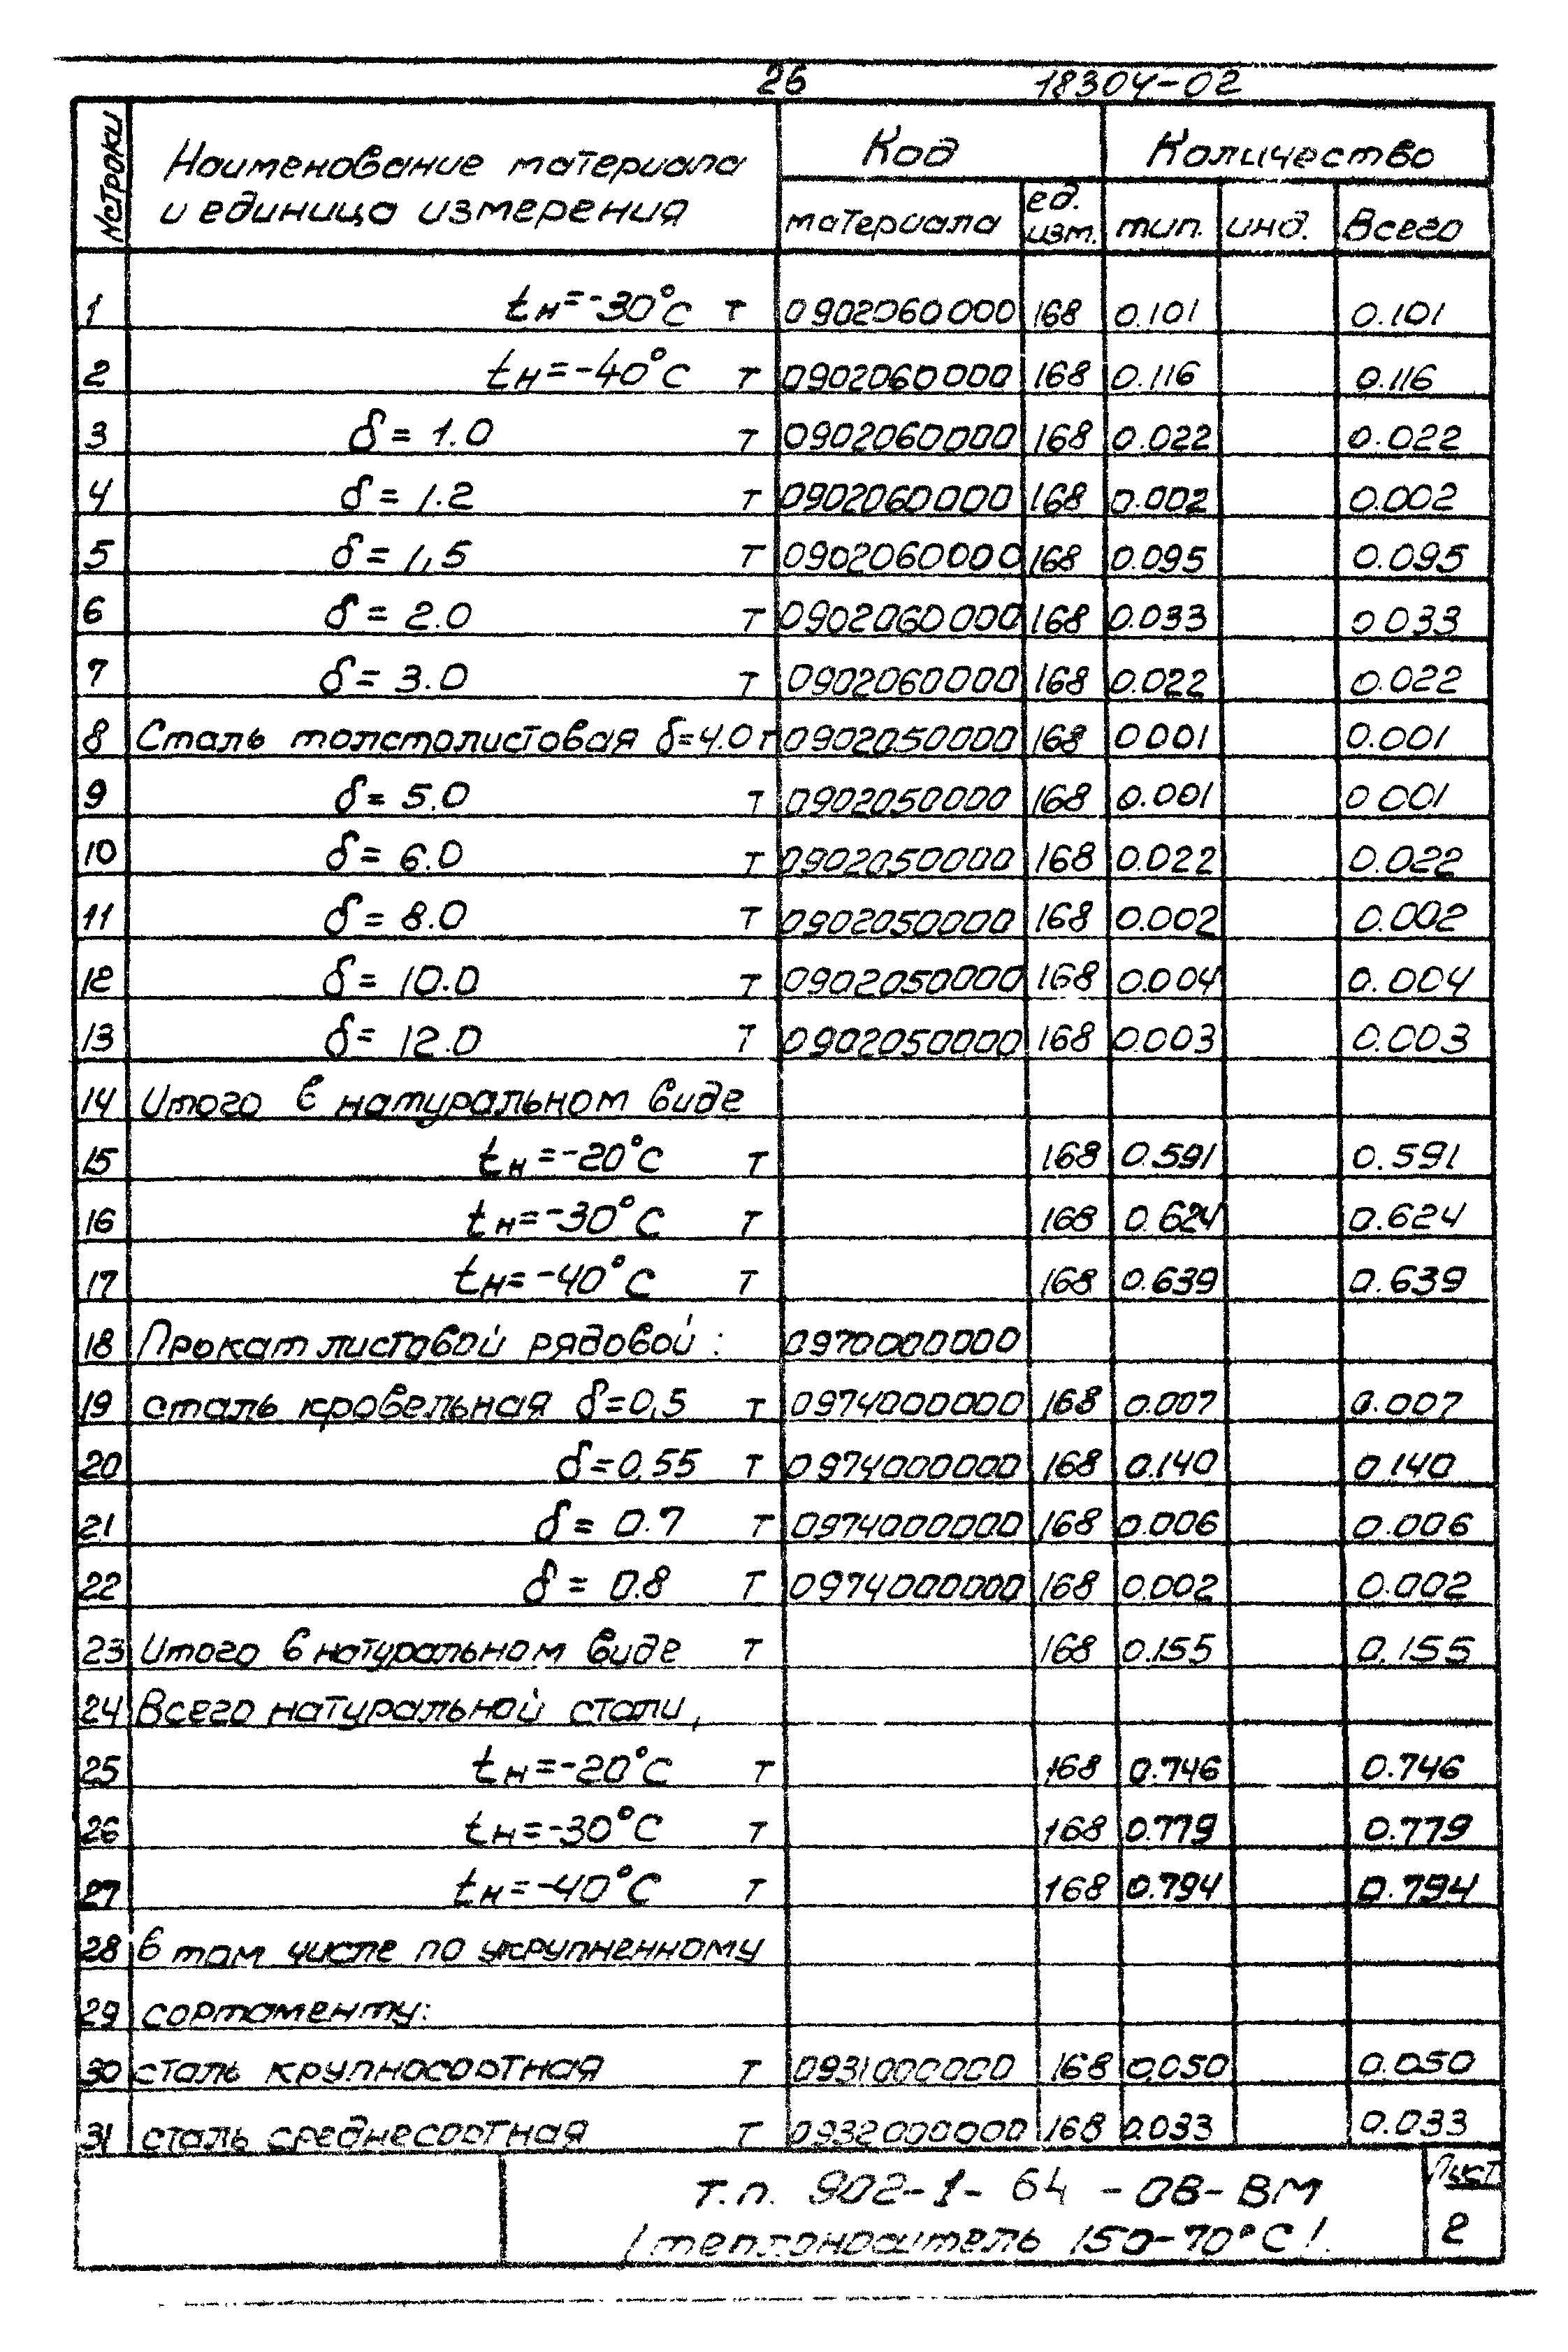 26 18304-02
№ строки
Наименование материала
и единица измерения
Код
Количество
материала
ед.
изм.
тип.
инд.
Всего
1 tн=-30°С т 0902060000 168 0.101 0.101
2 tн=-40°С т 0902060000 168 0.116 0.116
3 δ= 1.0 т 0902060000 168 0.022 0.022
4 δ= 1.2 т 0902060000 168 0.002 0.002
5 δ= 1,5 т 0902060000 168 0.095 0.095
6 δ= 2.0 т 0902060000 168 0.033 0 033
7 δ= 3.0 т 0902060000 168 0.022 0.022
8 Сталь толстолистовая δ=4.0 т 0902050000 168 0 001 0.001
9 δ= 5.0 т 0902050000 168 0.001 0 001
10 δ= 6.0 т 0902050000 168 0.022 0.022
11 δ= 8.0 т 0902050000 168 0.002 0.002
12 δ= 10.0 т 0902050000 168 0.004 0.004
13 δ= 12.0 т 0902050000 168 0.003 0.003
14 Итого в натуральном виде
15 tн=-20°С т 168 0.591 0.591
16 tн=-30°С т 168 0.624 0.624
17 tн=-40°С т 168 0.639 0.639
18 Прокат листовой рядовой: 0970000000
19 сталь кровельная δ=0,5 т 0974000000 168 0.007 0.007
20 δ=0,55 т 0974000000 168 0.140 0.140
21 δ= 0.7 т 0974000000 168 0.006 0.006
22 δ= 0.8 т 0974000000 168 0.002 0.002
23 Итого в натуральном виде т 168 0.155 0.155
24 Всего натуральной стали,
25 tн=-20°С т 168 0.746 0.746
26 tн=-30°С т 168 0.779 0.779
27 tн=-40°С т 168 0.794 0.794
28 в том числе по укрупненному
29 сортаменту:
30 сталь крупносортная т 0931000000 168 0.050 0.050
31 сталь среднесортная т 0932000000 168 0.033 0.033
т.п. 902-1-64 -ОВ-ВМ
/теплоноситель 150-70°С/.
Лист
2